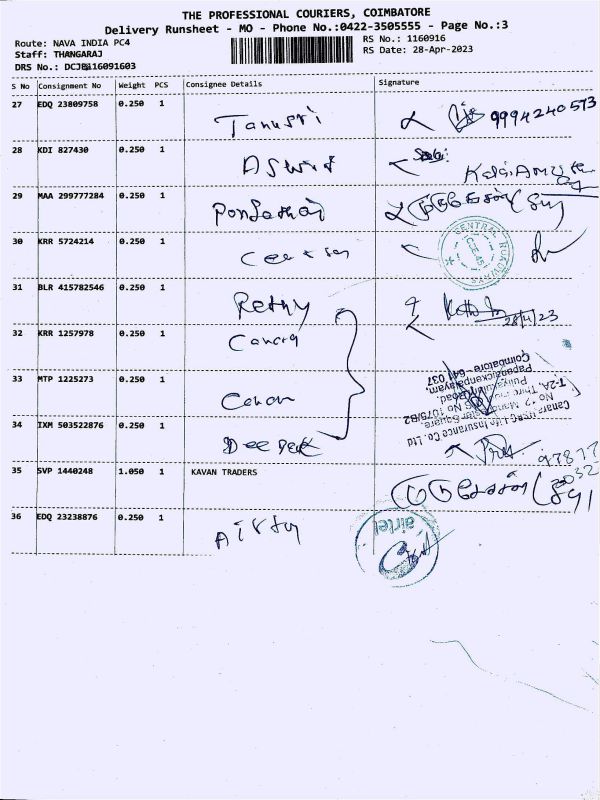 THE PROFESSIONAL COURIERS, COIMBATORE
Delivery Runsheet - MO - Phone No.:0422-3505555 - Page No.:3
Route: NAVA INDIA PC4
RS No.: 1160916
Staff: THANGARAJ
RS Date: 28-Apr-2023
DRS No.:
S No Consignment No Weight PCS Consignee Details Signature
27 EDQ 23809758 0.250 1 Tanusri 9994240573
28 KDI 827430 0.250 1
29 MAA 299777284 0.250 1
30 KRR 5724214 0.250 1
CENTRAL ROADWAYS
31 BLR 415782546 0.250 1 Rethy
28/4/23
32 KRR 1257978 0.250 1 Canara
33 MTP 1225273 0.250 1 Canon
Canara HSBC Life Insurance Co. Ltd
Coimbatore - 641 037
34 IXM 503522876 0.250 1 Deepak
35 SVP 1440248 1.050 1 KAVAN TRADERS
36 EDQ 23238876 0.250 1 Airtel
airtel